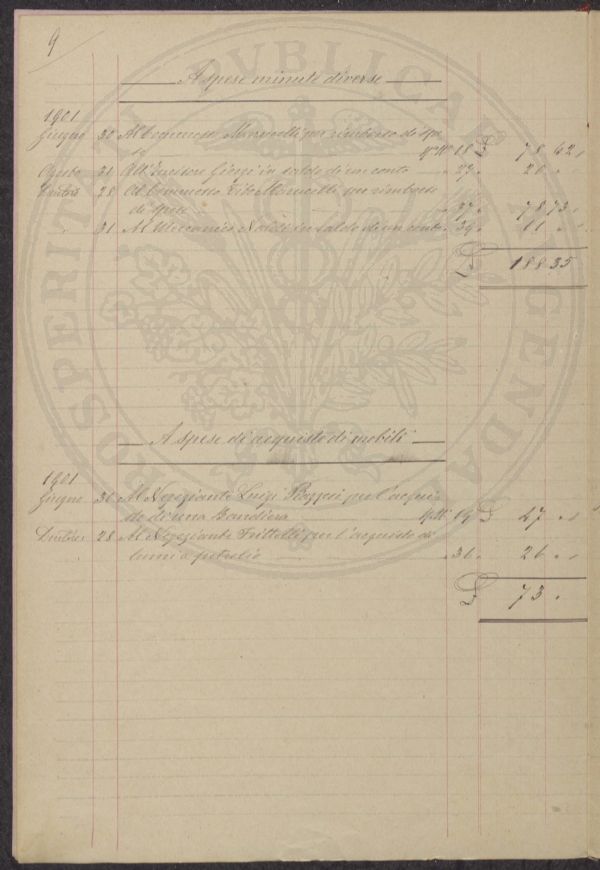 9
A spese minute diverse
1901
Giugno 30 Al Commesso Marucelli per rimborso di spe
se Mto No 18 £ 78 62
Agosto 31 in saldo di un conto " 27 " 20 " "
28 Al Commesso Tito Marucelli per rimborso
di spese " 37 " 78 73
" 31 Al Meccanico Naldi in saldo di un conto " 39 " 11 " "
£ 188 35
A spese di acquisto di mobili
1901
Giugno 30 Al Negoziante Luigi per l'acqui
sto di una Bandiera Mto No 19 £ 47 " "
28 Al Negoziante Frittelli per l'acquisto di
lumi a petrolio " 36 " 26 " "
£ 73 "
PROSPERITATI PVBLICAE AVGENDAE